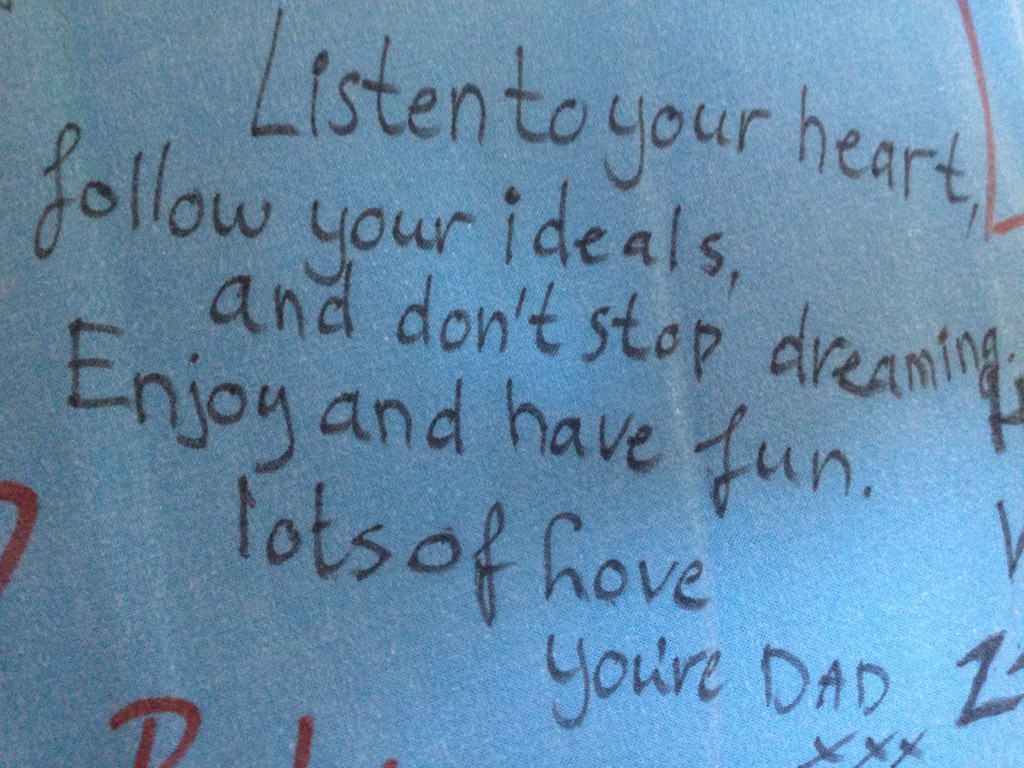 Listen to your heart,
follow your ideals,
and don't stop dreaming.
Enjoy and have fun.
lots of Love
you're DAD
xxx